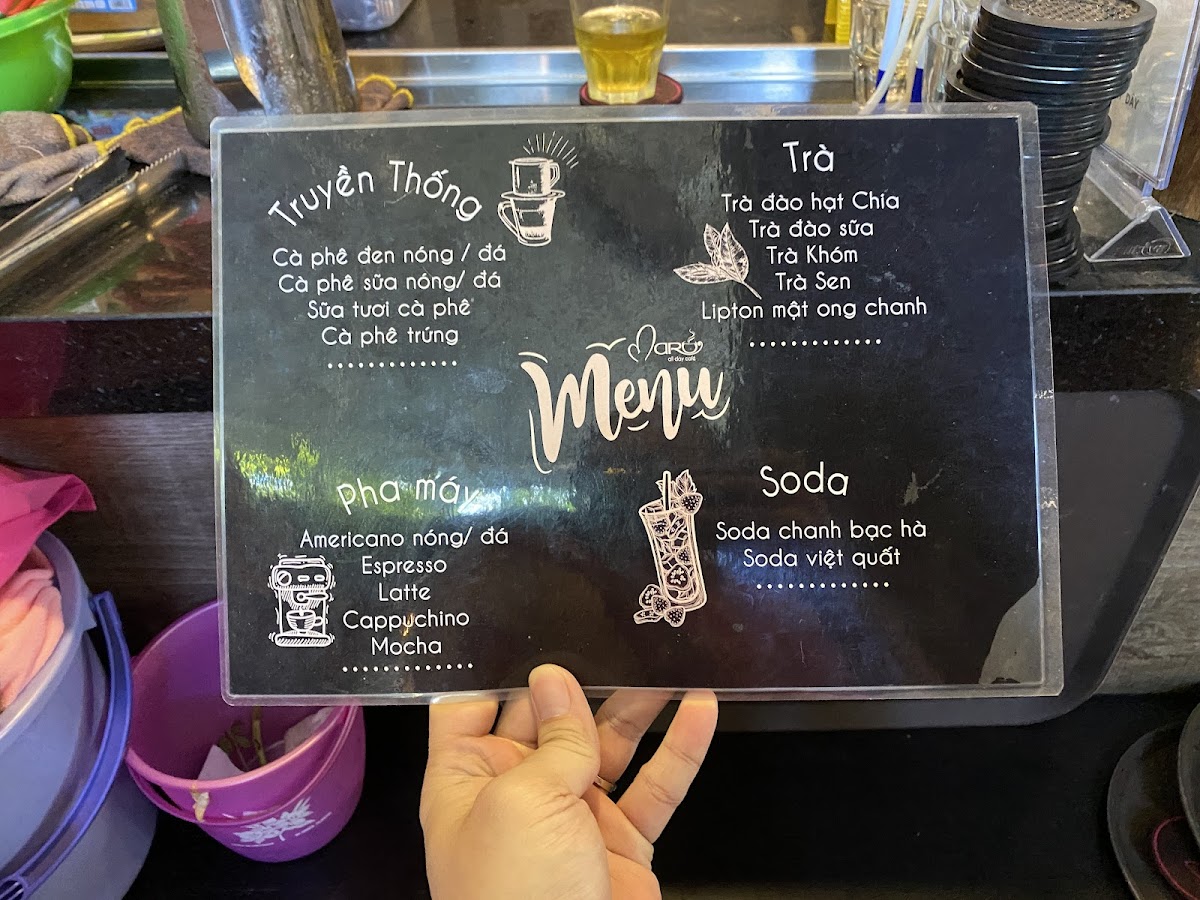 Truyền Thống
Cà phê đen nóng / đá
Cà phê sữa nóng/ đá
Sữa tươi cà phê
Cà phê trứng
Trà
Trà đào hạt Chia
Trà đào sữa
Trà Khóm
Trà Sen
Lipton mật ong chanh
Maru
all day café
Menu
pha máy
Americano nóng/ đá
Espresso
Latte
Cappuchino
Mocha
Soda
Soda chanh bạc hà
Soda việt quất
DAY